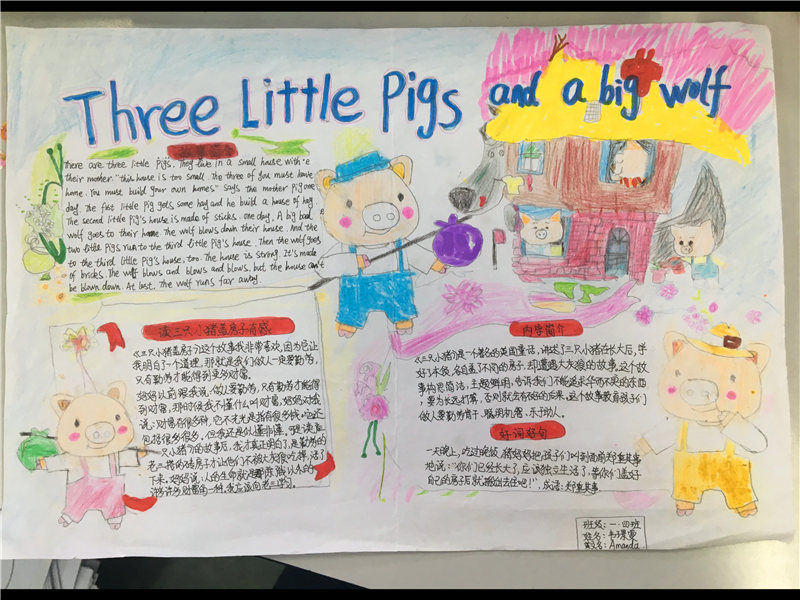 Three Little Pigs and a big wolf
故事简介
There are three little pigs. They live in a small house with
their mother. "This house is too small. The three of you must leave
home. You must build your own homes" says the mother pig one
day. The first little pig gets some hay and he build a house of hay.
The second little pig's house is made of sticks. one day, A big bad
wolf goes to their home. The wolf blows down their house. And the
two little pigs run to the third little pig's house. Then the wolf goes
to the third little pig's house, too. The house is strong. It's made
of bricks. The wolf blows and blows and blows, but the house can't
be blown down. At last, The wolf runs far away.
读三只小猪盖房子有感
《三只小猪盖房子》这个故事我非常喜欢,因为它让
我明白了一个道理,那就是我们做人一定要勤劳,
只有勤劳才能得到更多财富。
妈妈以前跟我说,做人要勤劳,只有勤劳才能得
到财富,那时候我不懂什么叫财富,妈妈对我
说:财富有很多种,它不光光是指有很多钱,它还
包括很多很多,但我还是似懂非懂,
只小猪》的故事后,我才真正明白了,是勤劳的
老三猪的砖房子才让他们不被大灰狼吃掉,活了
下来,妈妈说:人的生命就
许多财富的一种,我应该向老三学习。
内容简介
《三只小猪》是一个著名的英国童话,讲述了三只小猪在长大后,学
好了本领,各自盖了不同的房子,却遭遇大灰狼的故事,这个故
事构思简洁,主题鲜明,告诉我们不能追求华而不实的东西
,要为长远打算,否则就会有
做人要勤劳肯干、聪明机智、乐于助人。
好词好句
一天晚上,吃过晚饭,猪妈妈把孩子们叫到面前郑重其事
地说:"你们已经长大了,应该独立生活了,等你们盖好
自己的房子后就搬出去住吧!",成语:郑重其事
班级:一·四班
姓名:
英文名:Amanda